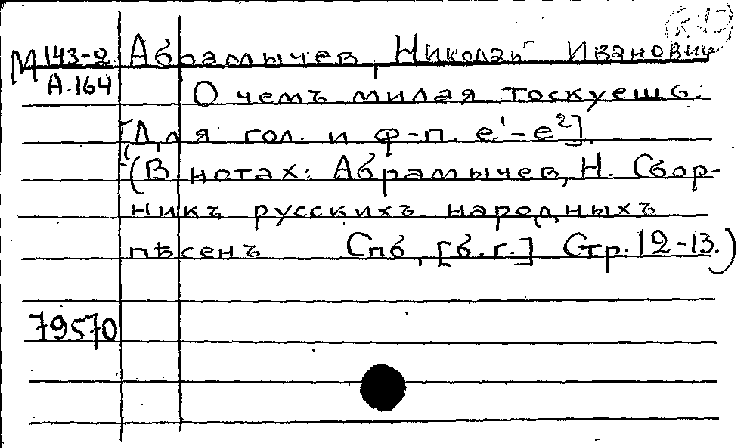 М 143-2 Абрамычев, Николай Иванович
А.164 О чемъ милая тоскуешь.
[Для гол. и ф-п. e¹-e²].
(В нотах: Абрамычев, Н. Сбор-
никъ русскихъ народныхъ
пѣсенъ Спб, [б.г.] Стр. 12-13.)
79570